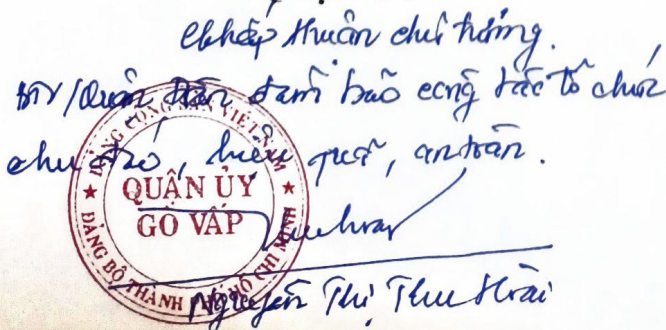 Chấp thuận chủ trương.
BTV/Quận Đoàn đảm bảo công tác tổ chức
chu đáo, hiệu quả, an toàn.
ĐẢNG CỘNG SẢN VIỆT NAM
QUẬN ỦY
GÒ VẤP
ĐẢNG BỘ THÀNH PHỐ HỒ CHÍ MINH
Nguyễn Thị Thu Hoài